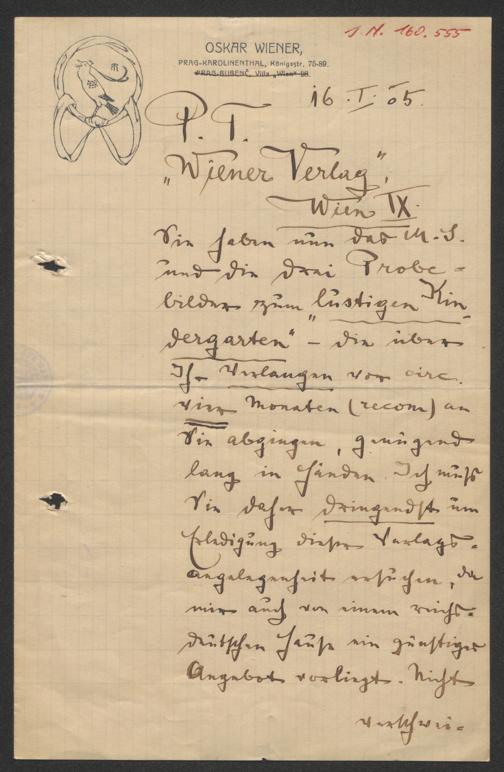 I. N. 160.555
OSKAR WIENER,
PRAG-KAROLINENTHAL, Königsstr. 75-89.
PRAG-BUBENČ, Villa „Wien" 98.
16. I. 05.
P. T.
„Wiener Verlag",
Wien IX.
Sie haben nun das M. S.
und die drei Probe-
bilder zum „lustigen Kin-
dergarten" – die über
Ihr Verlangen vor circ.
vier Monaten (recom) an
Sie abgingen, genügend
lang in Händen. Ich muß
Sie daher dringendst um
Erledigung dieser Verlags-
angelegenheit ersuchen, da
mir auch von einem reichs-
deutschen Hause ein günstiges
Angebot vorliegt. Nicht
verschwei-